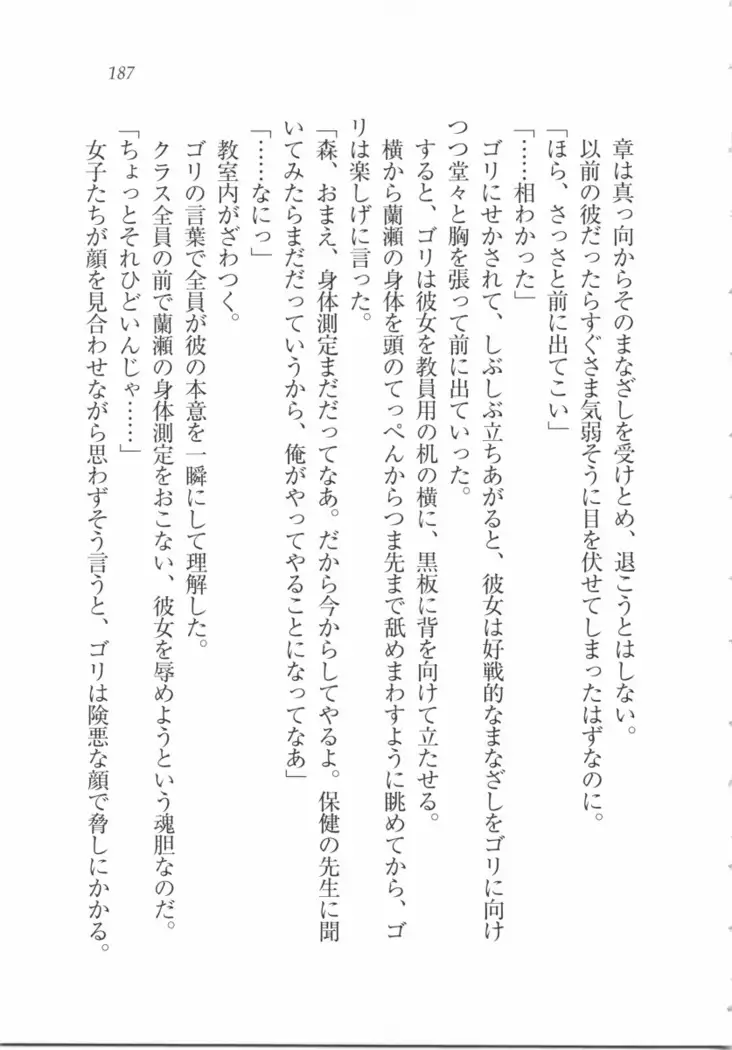 187
章は真っ向からそのまなざしを受けとめ、退こうとはしない。
以前の彼だったらすぐさま気弱そうに目を伏せてしまったはずなのに。
「ほら、さっさと前に出てこい」
「……相わかった」
ゴリにせかされて、しぶしぶ立ちあがると、彼女は好戦的なまなざしをゴリに向け
つつ堂々と胸を張って前に出ていった。
すると、ゴリは彼女を教員用の机の横に、黒板に背を向けて立たせる。
横から蘭瀬の身体を頭のてっぺんからつま先まで舐めまわすように眺めてから、ゴ
リは楽しげに言った。
「森、おまえ、身体測定まだだってなあ。だから今からしてやるよ。保健の先生に聞
いてみたらまだだっていうから、俺がやってやることになってなあ」
「……なにっ」
教室内がざわつく。
ゴリの言葉で全員が彼の本意を一瞬にして理解した。
クラス全員の前で蘭瀬の身体測定をおこない、彼女を辱めようという魂胆なのだ。
「ちょっとそれひどいんじゃ……」
女子たちが顔を見合わせながら思わずそう言うと、ゴリは険悪な顔で脅しにかかる。